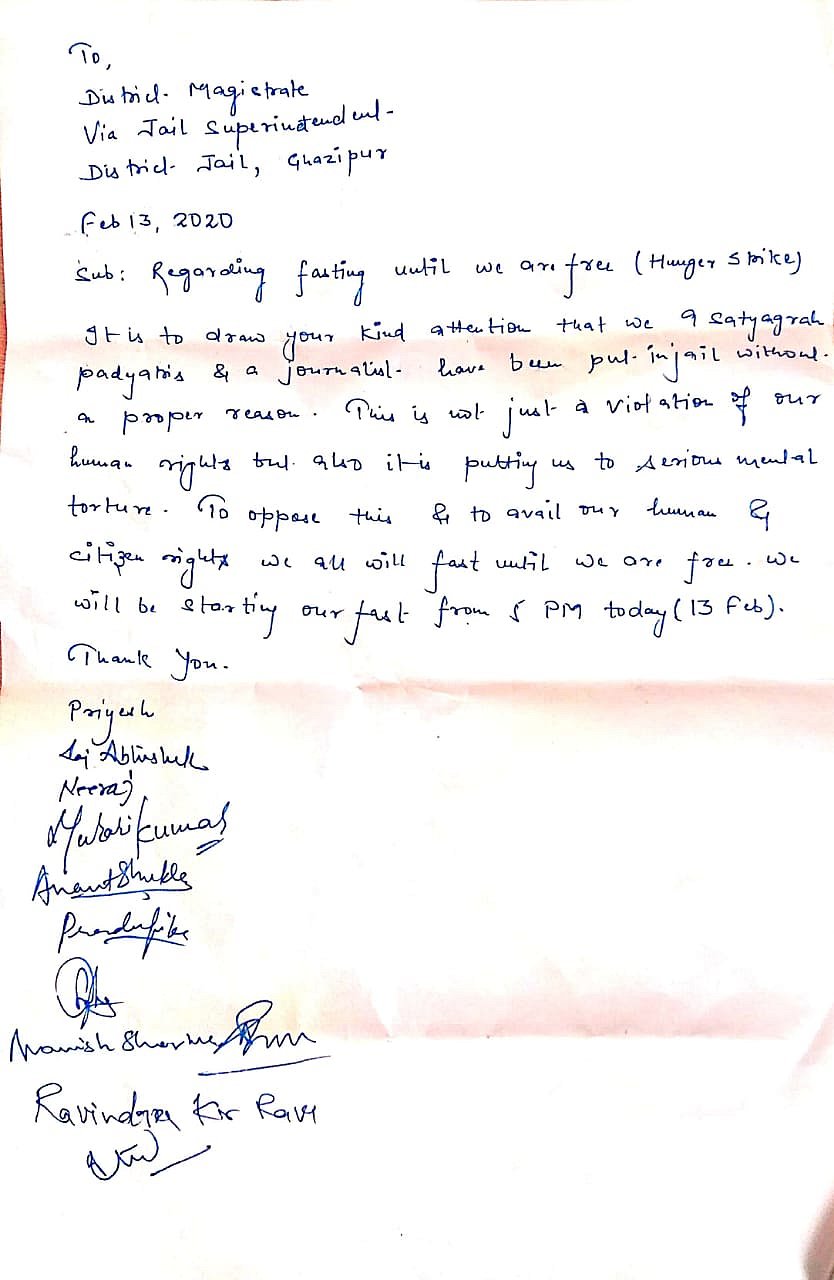 To,
District Magistrate
Via Jail Superintendent
District Jail, Ghazipur
Feb 13, 2020
Sub: Regarding fasting until we are free (Hunger Strike)
It is to draw your kind attention that we 9 satyagrah
padyatris & a journalist have been put in jail without
a proper reason. This is not just a violation of our
human rights but also it is putting us to serious mental
torture. To oppose this & to avail our human &
citizen rights we all will fast until we are free. we
will be starting our fast from 5 PM today (13 Feb).
Thank you.
Priyesh
Raj Abhishek
Neeraj
Murari kumar
Anant Shukla
Manish Sharma
Ravindra Kr Ravi